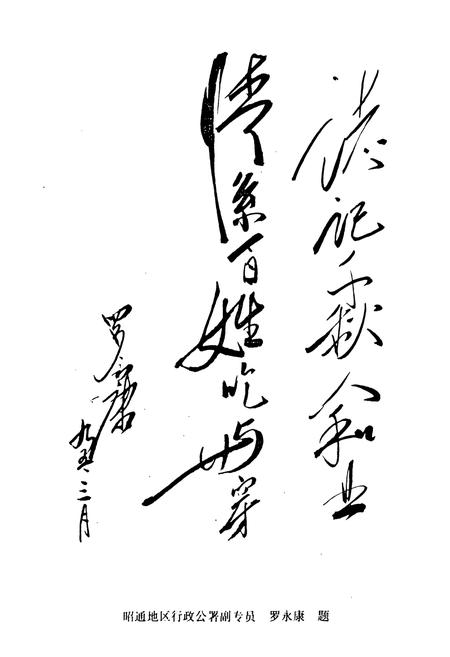 誌记献人和业
情系百姓吃与穿
罗永康
九五、三月
昭通地区行政公署副专员 罗永康 题